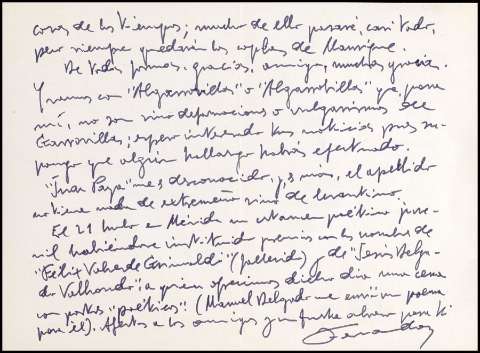 cosas de los tiempos; mucho de ello pasará, casi todo,
pero siempre quedarán las coplas de Manrique.
De todas formas, gracias, amigo, muchas gracias.
Y vamos con "Algarrovillas" o "Algarrobillas" que, para
mí, no son sino deformaciones o vulgarismos de
Garrovillas; espero interesado tus noticias pues su-
pongo que algún hallazgo habrás efectuado.
"Juan Paya" me es desconocido, y es más, el apellido
no tiene nada de extremeño sino de levantino.
El 21 hubo en Mérida un certamen poético juve-
nil habiéndose instituido premios con los nombres de
"Félix Valverde Grimaldi" (fallecido) y de "Jesús Delga-
do Valhondo" a quien ofrecimos dicho día una cena
con postres "poéticos" (Manuel Delgado me envió un poema
para él). Afectos a los amigos y un fuerte abrazo para ti